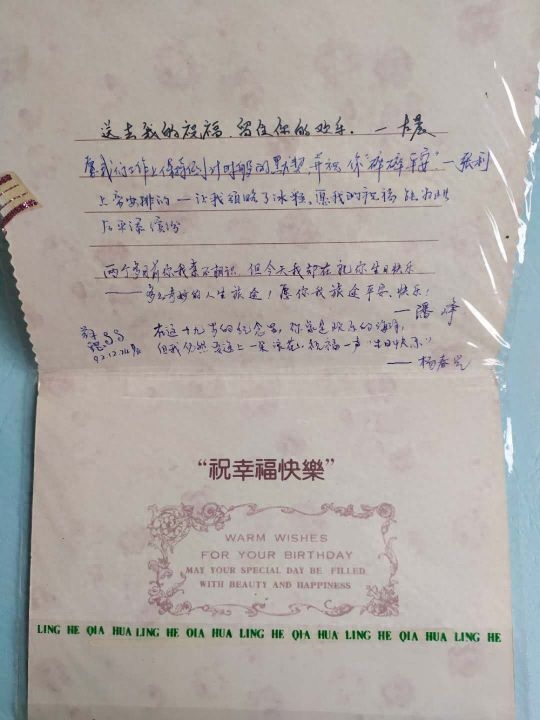 送去我的祝福 留住你的欢乐. — 大晨
愿我们工作上保持 时的默契, 并祝你"碎碎平安" — 张利
上帝安排的 — 让我领略了冰 , 愿我的祝福能为此
后平添缤纷
两个多月前你我素不相识, 但今天我却在祝你生日快乐
—— 多么奇妙的人生旅途! 愿你我旅途平安、快乐!
— 潘峰
在这十九岁的纪念日, 你家是欢乐的海洋,
但我仍然要送上一朵浪花, 祝福一声"生日快乐"
—— 杨春
92.12.24
“祝幸福快樂”
WARM WISHES
FOR YOUR BIRTHDAY
MAY YOUR SPECIAL DAY BE FILLED
WITH BEAUTY AND HAPPINESS
LING HE QIA HUA LING HE QIA HUA LING HE QIA HUA LING HE QIA HUA LING HE